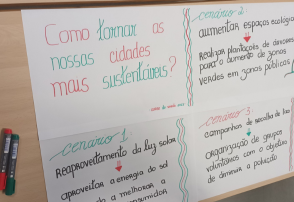 Como tornar as
nossas cidades
mais sustentáveis?
cenário 2
aumentar espaços
Realizar plantações de árvores
para o aumento de zonas
verdes em zonas públicas
cenário 1:
Reaproveitamento da luz solar
aproveitar a energia do sol
a melhorar a
cenário 3
campanhas de recolha de lixo
organização de grupos
voluntários com o objetivo
de diminuir a poluição